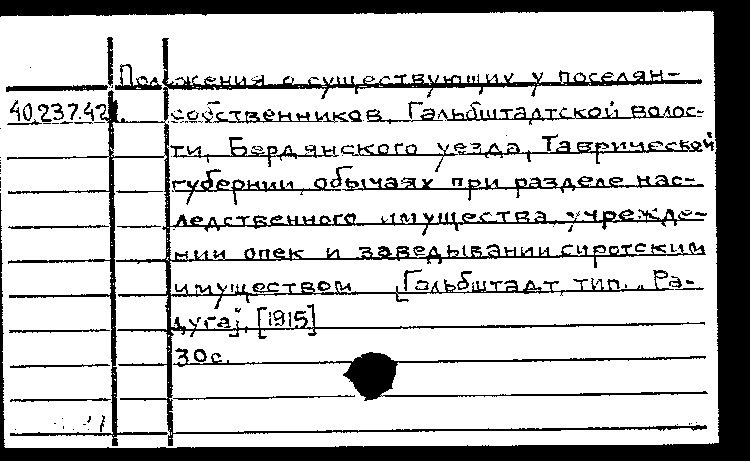 Положения о существующих у поселян-
40.237.421. собственников, Гальбштадтской волос-
ти, Бердянского уезда, Таврической
губернии, обычаях при разделе нас-
ледственного имущества, учрежде-
нии опек и заведывании сиротским
имуществом [Гальбштадт, тип. „Ра-
дуга], [1915]
30с.